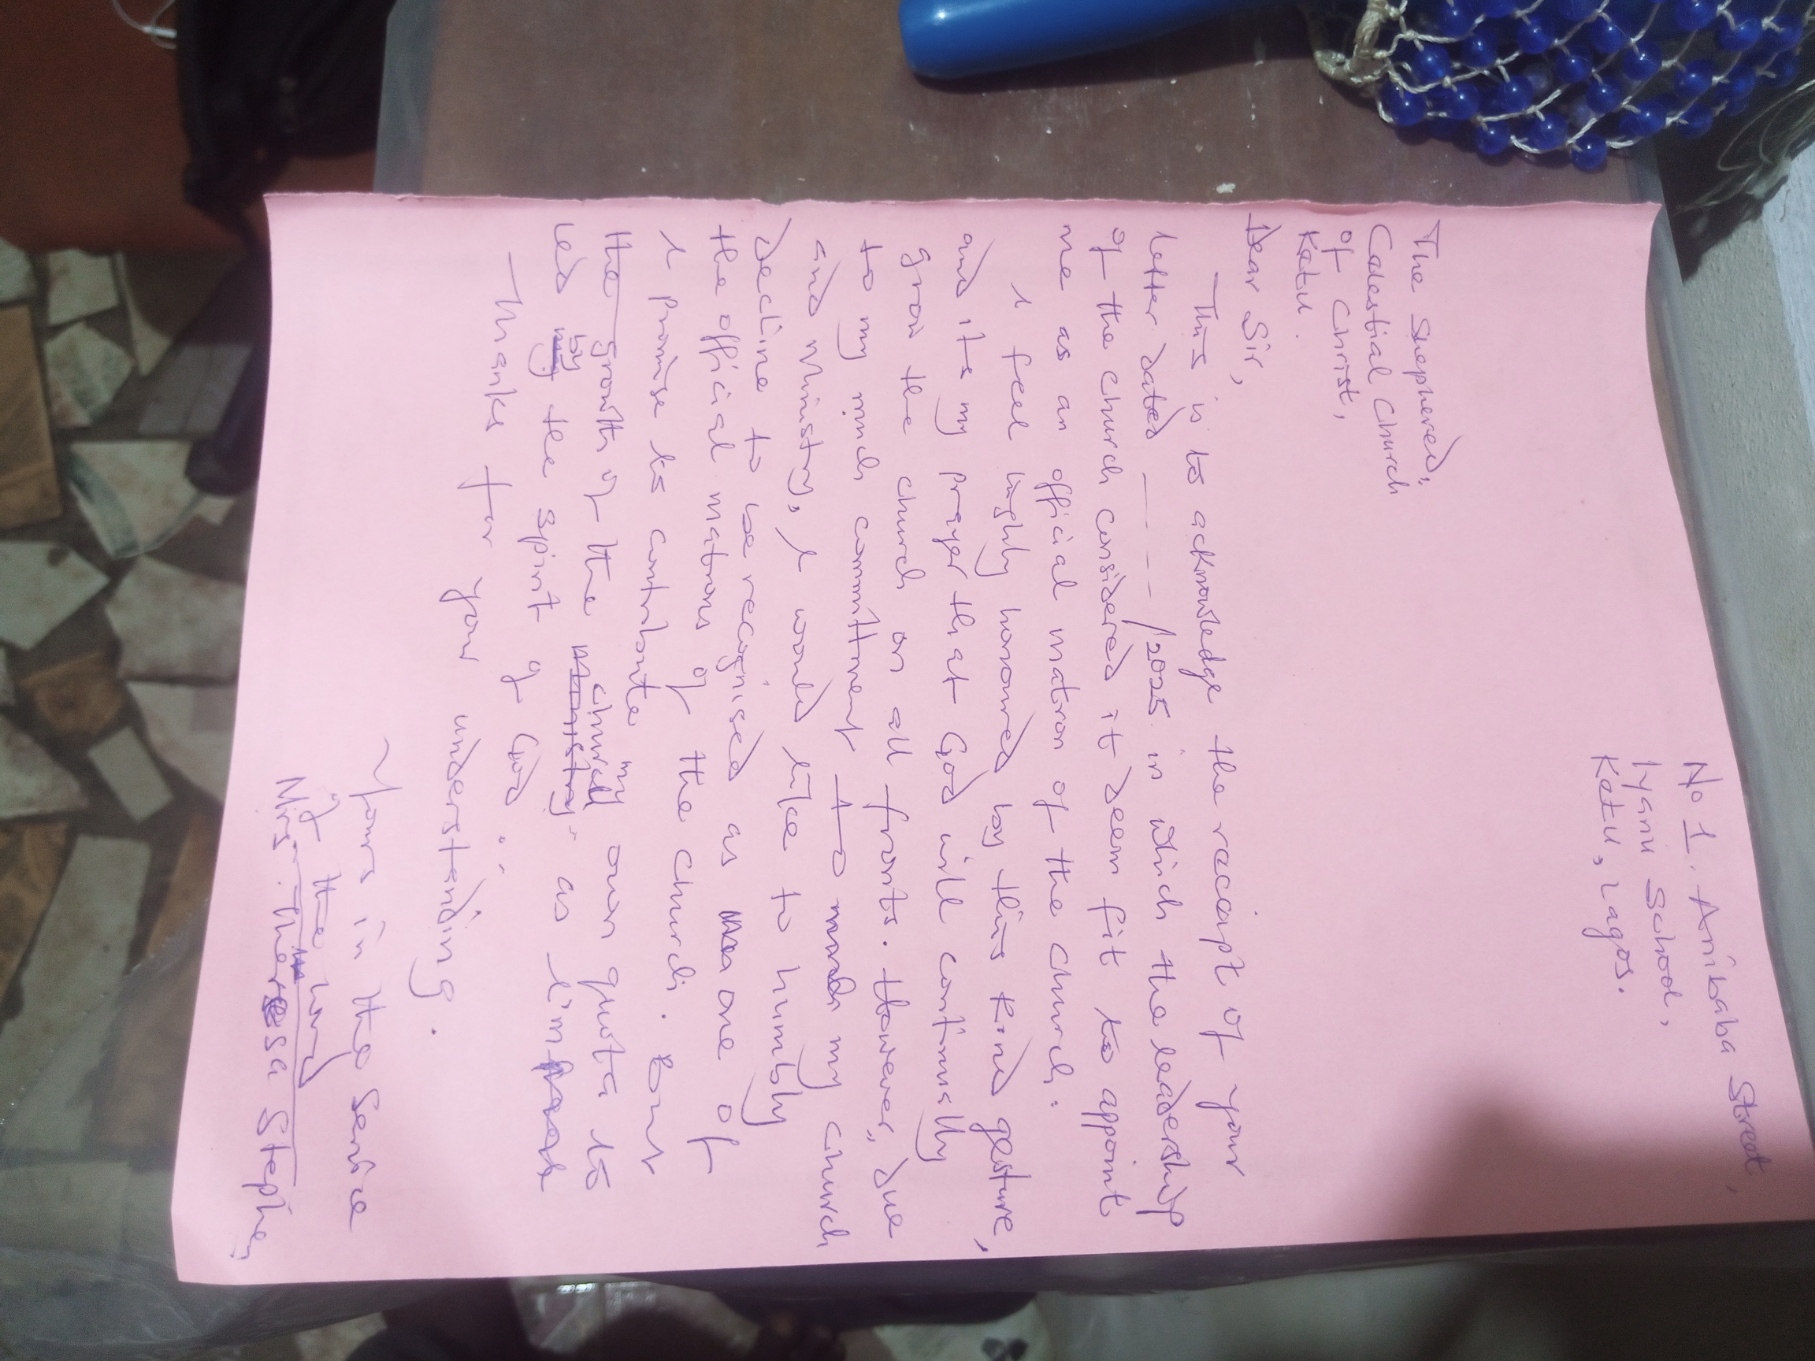 No 1. Anibaba Street,
Iyaniu School,
Ketu, Lagos.
The Shepherd,
Celestial Church
of Christ,
Ketu.
Dear Sir,
This is to acknowledge the receipt of your
letter dated ----/2025 in which the leadership
of the church considered it deem fit to appoint
me as an official matron of the church.
I feel highly honoured by this kind gesture,
and its my prayer that God will continually
grow the church on all fronts. However, due
to my much committment to my church
and Ministry, I would like to humbly
decline to be recognised as one of
the official matrons of the church. But
I promise to contribute my own quota to
the growth of the church as
led by the spirit of God.
Thanks for your understanding.
Yours in the service
of the Lord
Mrs. Theresa Stephen